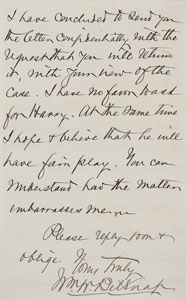 I have concluded to send you
the letter confidentially with the
request that you will return
it, with your view of the
case. I have no fun
for Harvy. At the same time
I hope & believe that he will
have fair play. You can
understand how the matter
embarrasses me.
Please reply soon &
oblige
Yours Truly
Wm W Belknap